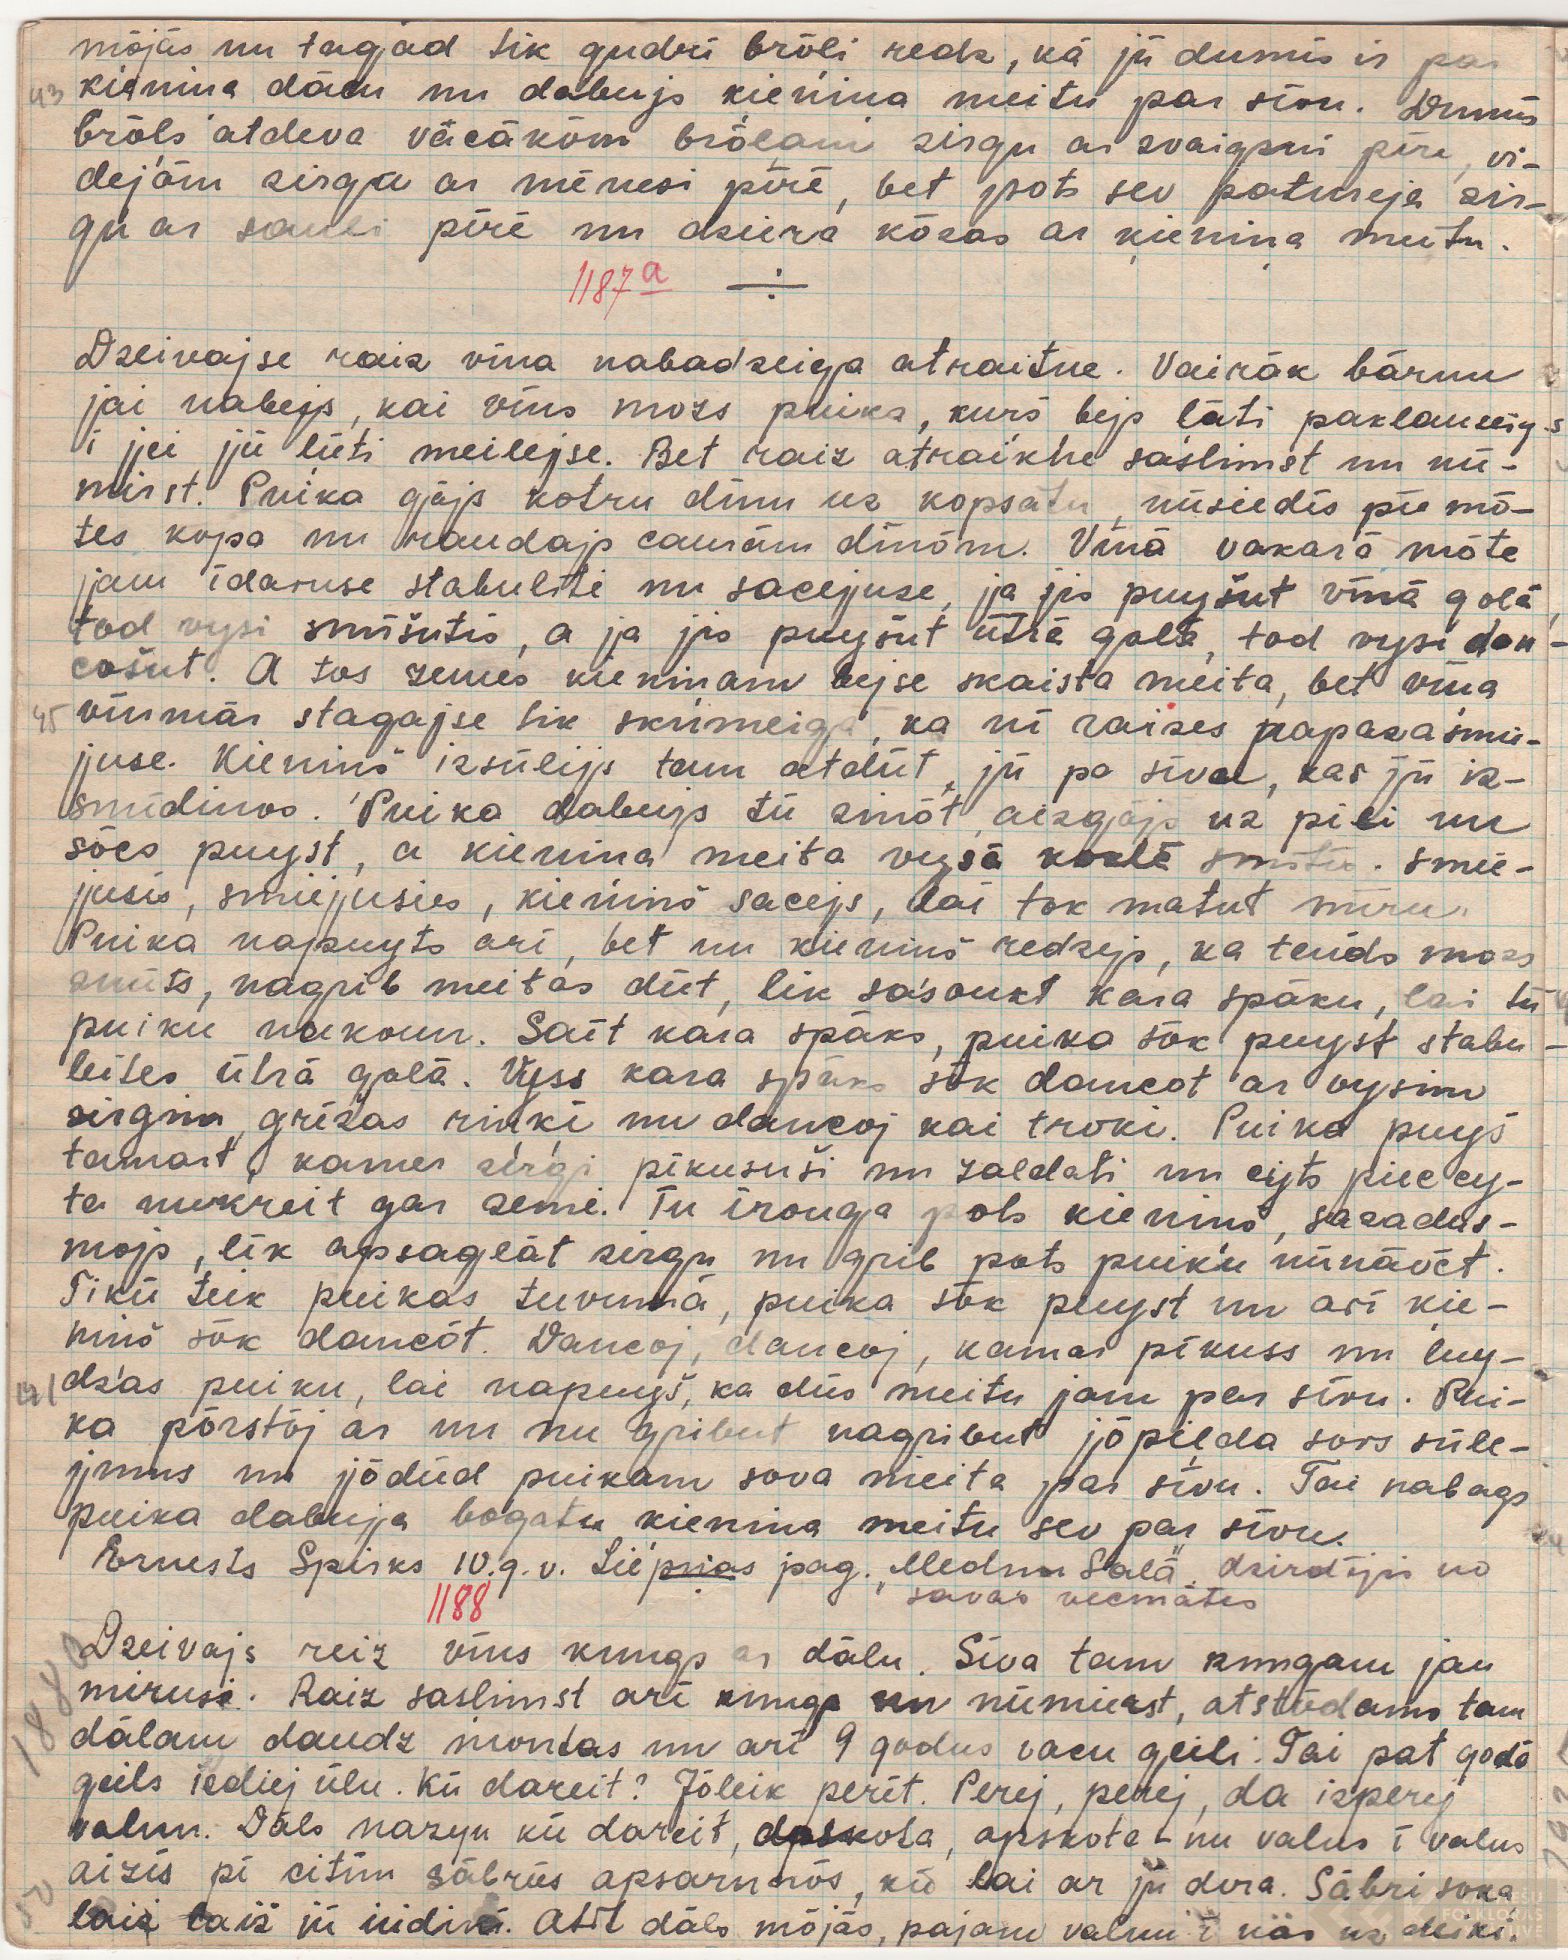 mōjās un tagad tik gudrī brōli redz, kā jū dumis ir par
kieniņa dālu un dabujs kieniņa meitu par sīvu. Dumis
brōls atdeva vācākōm brōļam zirgu ar zvaigzni pīrē, vi-
dejōm zirga ar mēnesi pīrē, bet pots sev patureja zir-
gu ar sauli pīrē un dzierā kōzas ar kieniņa meitu.
1187a
Dzeivajse raiz vīna nabadzeiga atraitne. Vairāk bārnu
jai nabejs, kai vīns mozs puika, kurš bejs lūti paklauseigs
i jei jū lūti meilejse. Bet raiz atraikne saslimst un nū-
mirst. Puika gōjs kotru dīnu uz kopsātu, nūsiedīs pie mō-
tes kopa un raudajs caurām dīnōm. Vīnā vakarā mōte
jam īdavuse stabulīti un sacejuse, ja jis puyšūt vīnā golā,
tod vysi smīšutīs, a ja jis puyšūt ūtrā golā, tod vysi don-
cošūt. A tos zemes kieniņam bejse skaista meita, bet vīna
vīnmār stagajse tik skumeiga, ka ni raizes napazasmie-
juse. Kieniņš izsūlijs tam atdūt jū pa sīva, kas jū iz-
smīdinos. Puika dabujs tū zinōt, aizgōjs uz pili un
sōcs puyst, a kieniņa meita vysā koklē smītu. Smie-
jusīs, smiejjusies, kieniņš sacejs, lai tok matut mīru.
Puika napuyts arī, bet nu kieniņš redzejs, ka teids mozs
znūts, nagrib meitas dūt, lik sasaukt kara spāku, lai tū
puiku nukoun. Sait kara spāks, puika sōk puyst stabu-
leites ūtrā golā. Vyss kara spāks sōk dancot ar vysim
zirgim, grīžas riņķī un dancoj kai troki. Puika puyš
tamārt, kamer zirgi pīkususi un zaldati un cyts piec cy-
ta nukreit gar zemi. Tu īrouga pots kieniņš, sazadus-
mojs, lik apsaglāt zirgu un grib pots puiku nūnāvēt.
Tikū teik puikas tuvumā, puika sōk puyst un arī kie-
niņš sōk dancōt. Dancoj, dancoj, kamar pīkuss un luy-
dzas puiku, lai napuyš, ka dūs meitu jam par sīvu. Pui-
ka pōrstōj ar un nu gribut nagribut jōpilda sovs sūle-
jjums un jōdūd puikam sova meita par sīvu. Tai nabags
puika dabuja bogatu kieniņa meitu sev par sīvu.
Ernests Spirks 10.g.v. Liepnas pag. "Mednu Salā" dzirdējis no
savas vecmātes
1188
Dzeivajs reiz vīns kungs ar dālu. Sīva tam kungam jau
mirusi. Raiz saslimst arī kungs un nūmierst, atstōdams tam
dālam daudz montas un arī 9 godus vacu geili. Tai pat godā
geils īzdiej ūlu. Kū dareit? Jōleik perēt. Perej, perej, da izperej
valnu. Dāls nazyn kū dareit, apskota, apskota un valns i valns
aizīs pi citim sābrūs apsarunōs, kū lai ar jū dora. Sābri soka
laiž laiž jū ūdinī. Atīt dāls mōjās, pajam valnu i nas uz deiki.